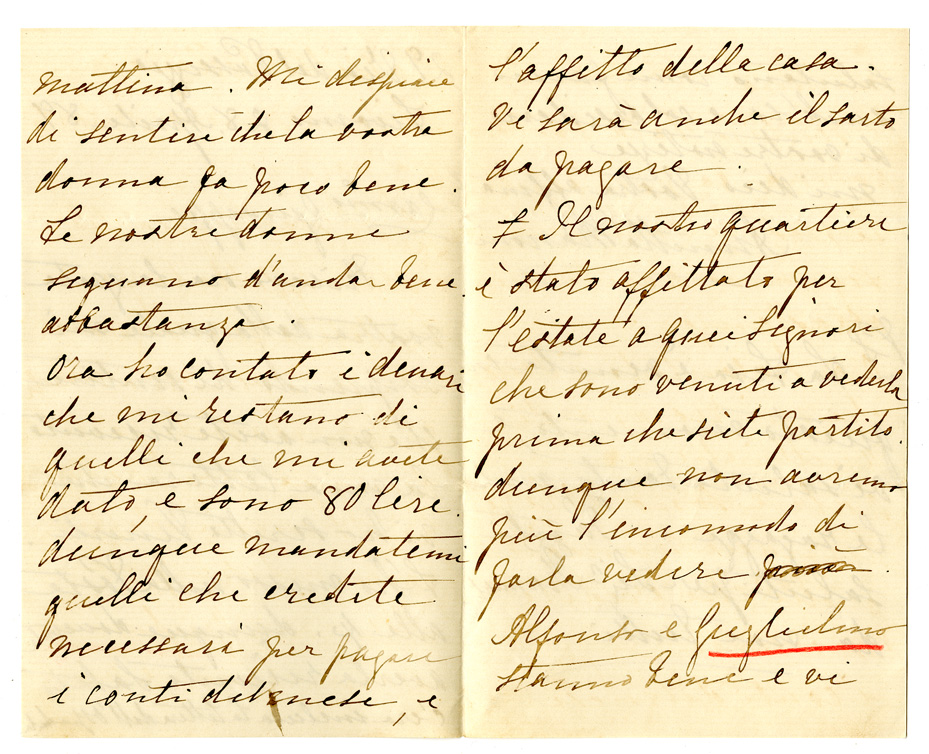 mattina. Mi dispiace
di sentire che la vostra
donna fa poco bene.
Le nostre donne
seguano d'andar bene
abbastanza.
Ora ho contato i denari
che mi restano di
quelli che mi avete
dato, e sono 80 lire.
dunque mandatemi
quelli che credete
necessari per pagare
i conti del mese, e
l'affitto della casa.
Vi sarà anche il sarto
da pagare.
Il nostro quartiere
è stato affittato per
l'estate a quei Signori
che sono venuti a vederla
prima che siete partito.
dunque non avremo
più l'incomodo di
farla vedere
Alfonso e Guglielmo
stanno bene e vi